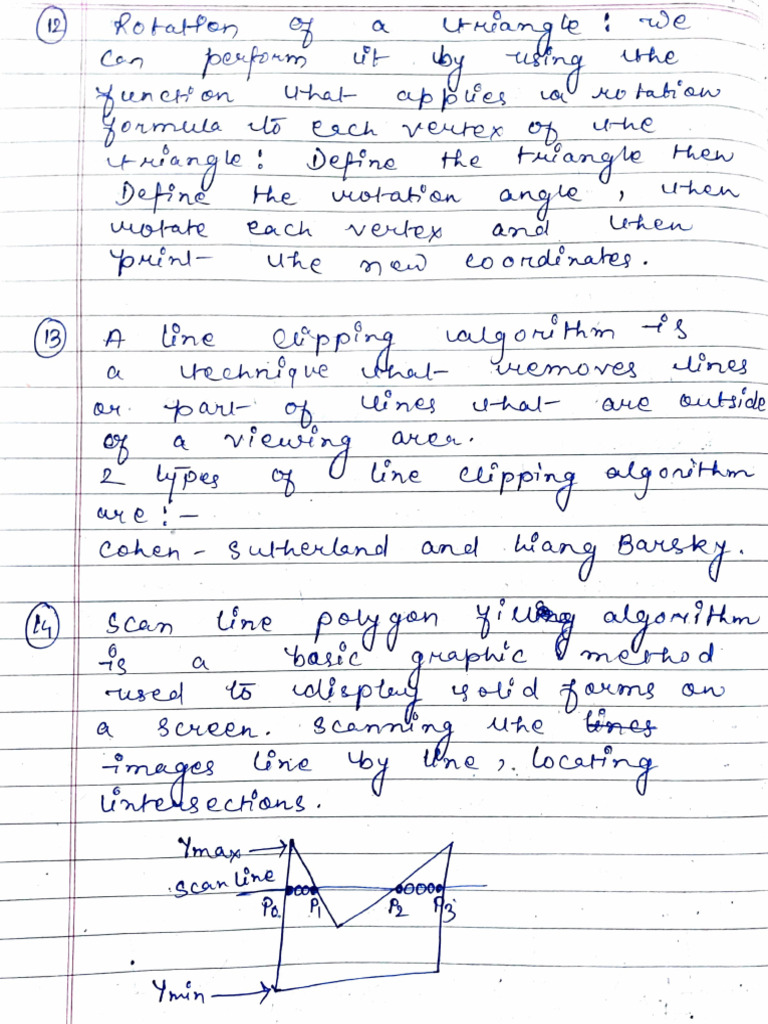 12 Rotation of a triangle : We
can perform it by using the
function that applies a rotation
formula to each vertex of the
triangle : Define the triangle then
Define the rotation angle , then
rotate each vertex and then
print the new coordinates .
13 A line clipping algorithm is
a technique that removes lines
or part of lines that are outside
of a viewing area .
2 types of line clipping algorithm
are : -
Cohen - Sutherland and Liang Barsky .
14 Scan line polygon filling algorithm
is a basic graphic method
used to display solid forms on
a screen . Scanning the lines
images line by line , locating
intersections .
Ymax
scan line
P0 P1 P2 P3
Ymin